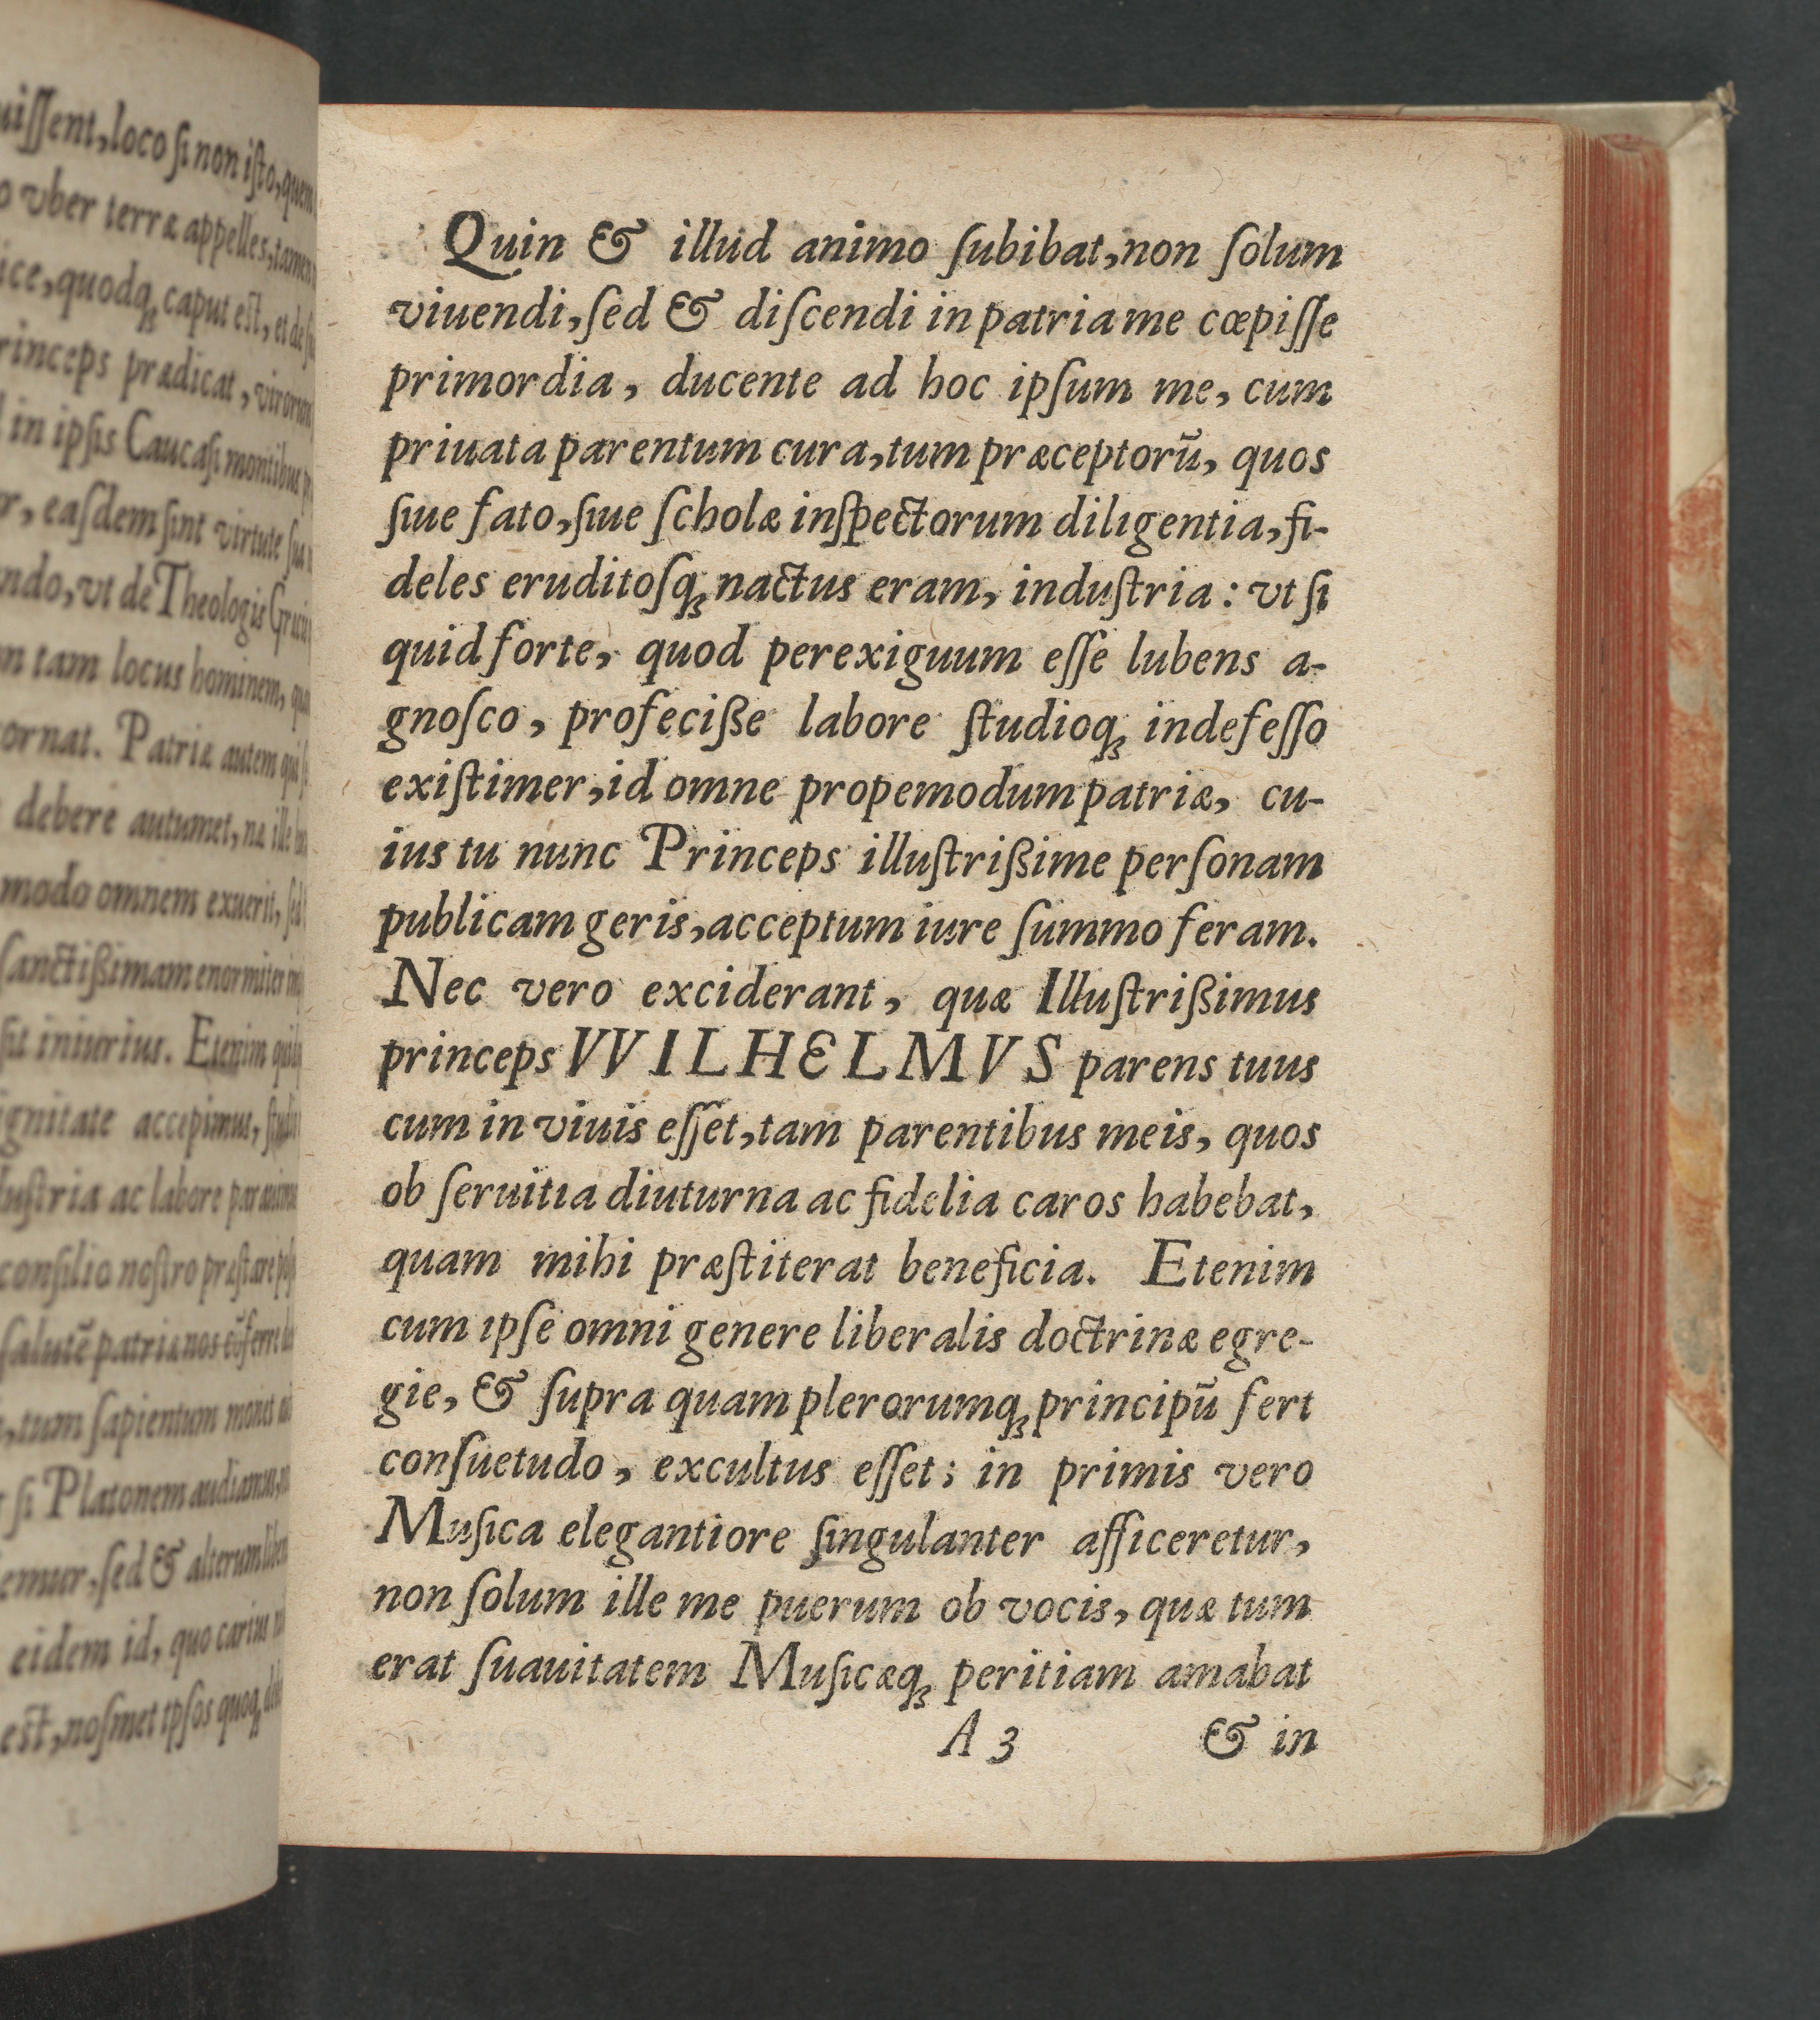 uiſſent, loco ſi non iſto, quem
o vber terræ appelles, tamen
ice, quodqꝫ caput eſt, et de
rinceps prædicat, virorum
in ipſis Caucaſi montibus
r, eaſdem ſint virtute ſua
ndo, vt de Theologis
n tam locus hominem,
ornat. Patriæ autem qui
debere autumet, næ ille
modo omnem exuerit, ſed
ſanctißimam enormiter
ſit iniurius. Etenim
gnitate accepimus,
duſtria ac labore
conſilio noſtro præſtare
ſalutē patriæ nos cōferre
, tum ſapientum monet
ſi Platonem audiamus,
emur, ſed & alterum
eidem id, quo carius
eſt, noſmet ipſos quoqꝫ
Quin & illud animo ſubibat, non ſolum
viuendi, ſed & diſcendi in patria me cœpiſſe
primordia, ducente ad hoc ipſum me, cum
priuata parentum cura, tum præceptorū, quos
ſiue fato, ſiue ſcholæ inſpectorum diligentia, fi-
deles eruditoſqꝫ nactus eram, induſtria: vt ſi
quid forte, quod perexiguum eſſe lubens a-
gnoſco, profeciße labore ſtudioqꝫ indefeſſo
exiſtimer, id omne propemodum patriæ, cu-
ius tu nunc Princeps illuſtrißime perſonam
publicam geris, acceptum iure ſummo feram.
Nec vero exciderant, quæ Illuſtrißimus
princeps VVILHELMVS parens tuus
cum in viuis eſſet, tam parentibus meis, quos
ob ſeruitia diuturna ac fidelia caros habebat,
quam mihi præſtiterat beneficia. Etenim
cum ipſe omni genere liberalis doctrinæ egre-
gie, & ſupra quam plerorumqꝫ principū fert
conſuetudo, excultus eſſet; in primis vero
Muſica elegantiore ſingulanter afficeretur,
non ſolum ille me puerum ob vocis, quæ tum
erat ſuauitatem Muſicæqꝫ peritiam amabat
A 3 & in